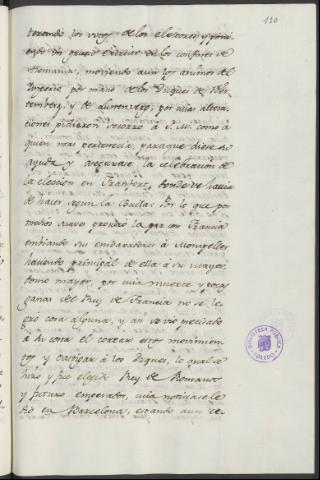 130
tocando los vivos de los electores y poni
endo un grueso exercito en los confines de
Alemania, moviendo aun los animos del
Imperio por mano de los Duques de Vir
temberg, y de Lunenvurg; por cuias altera
ciones pidieron socorro à S. M. como à
quien mas pertenecia, para que diese su
ayuda y asegurase la celebracion de
la eleccion en Franfort, donde se havia
de hacer segun la Bulla. Por lo que por
medios suaves procuró la paz con Francia
embiando sus embaxadores à Mompeller
haciendo principal de ella à su mayor
domo mayor, por cuia muerte y pocas
ganas del Rey de Francia no se le
gró cosa alguna, y asi se vio precisado
à su costa el cortar estos movimien
tos y castigar à los Duques, lo qual se
hizo y fue elegido Rey de Romanos
y futuro emperador, cuia noticia se le
dió en Barcelona, estando aun cer
BIBLIOTECA PUBLICA
TOLEDO